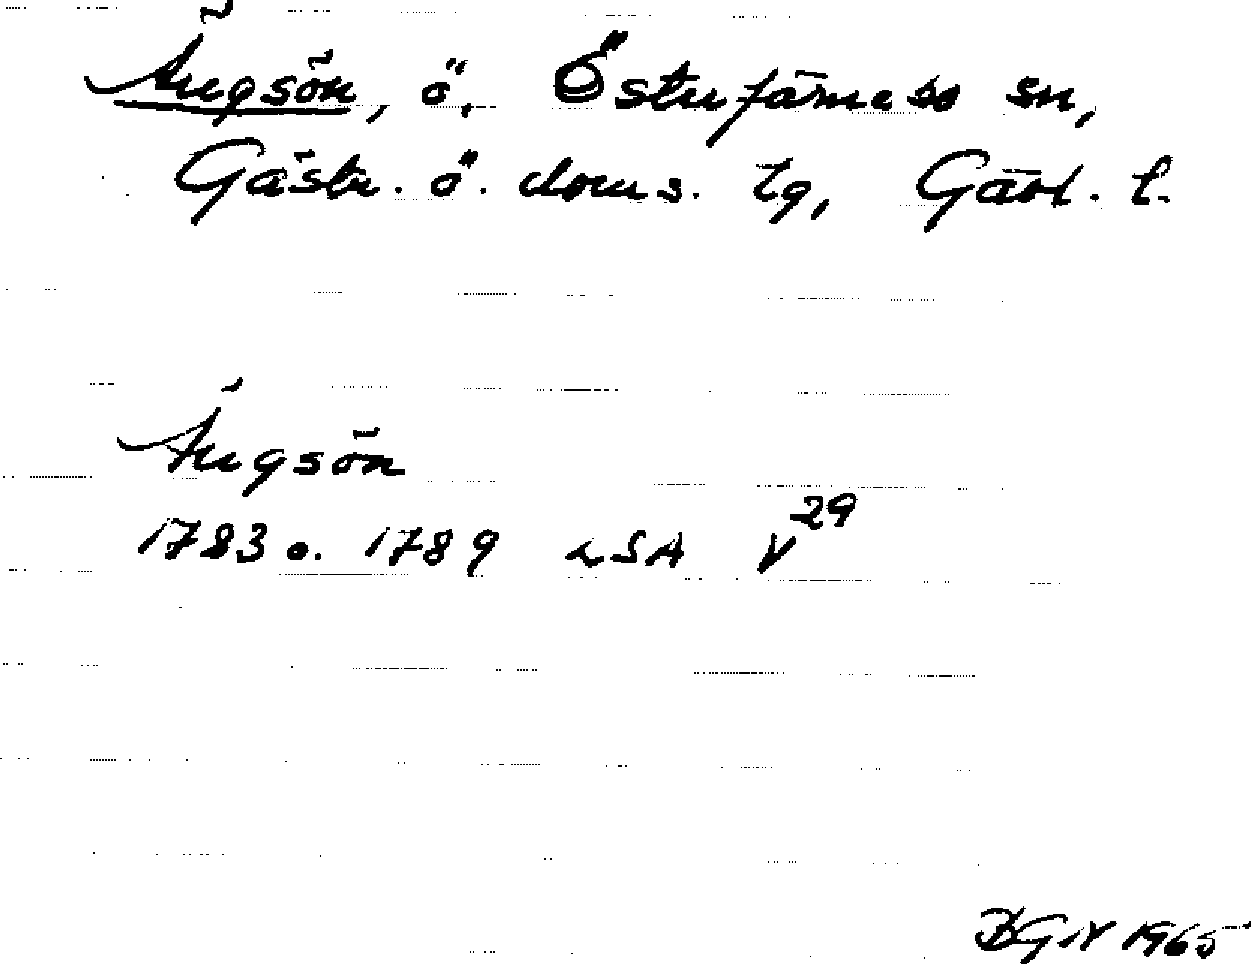 Ängsön, ö, Österfärnebo sn,
Gästr. ö. doms. tg, Gävl. l.
Ängsön
1783 o. 1789 LSA V²⁹
BGN 1965